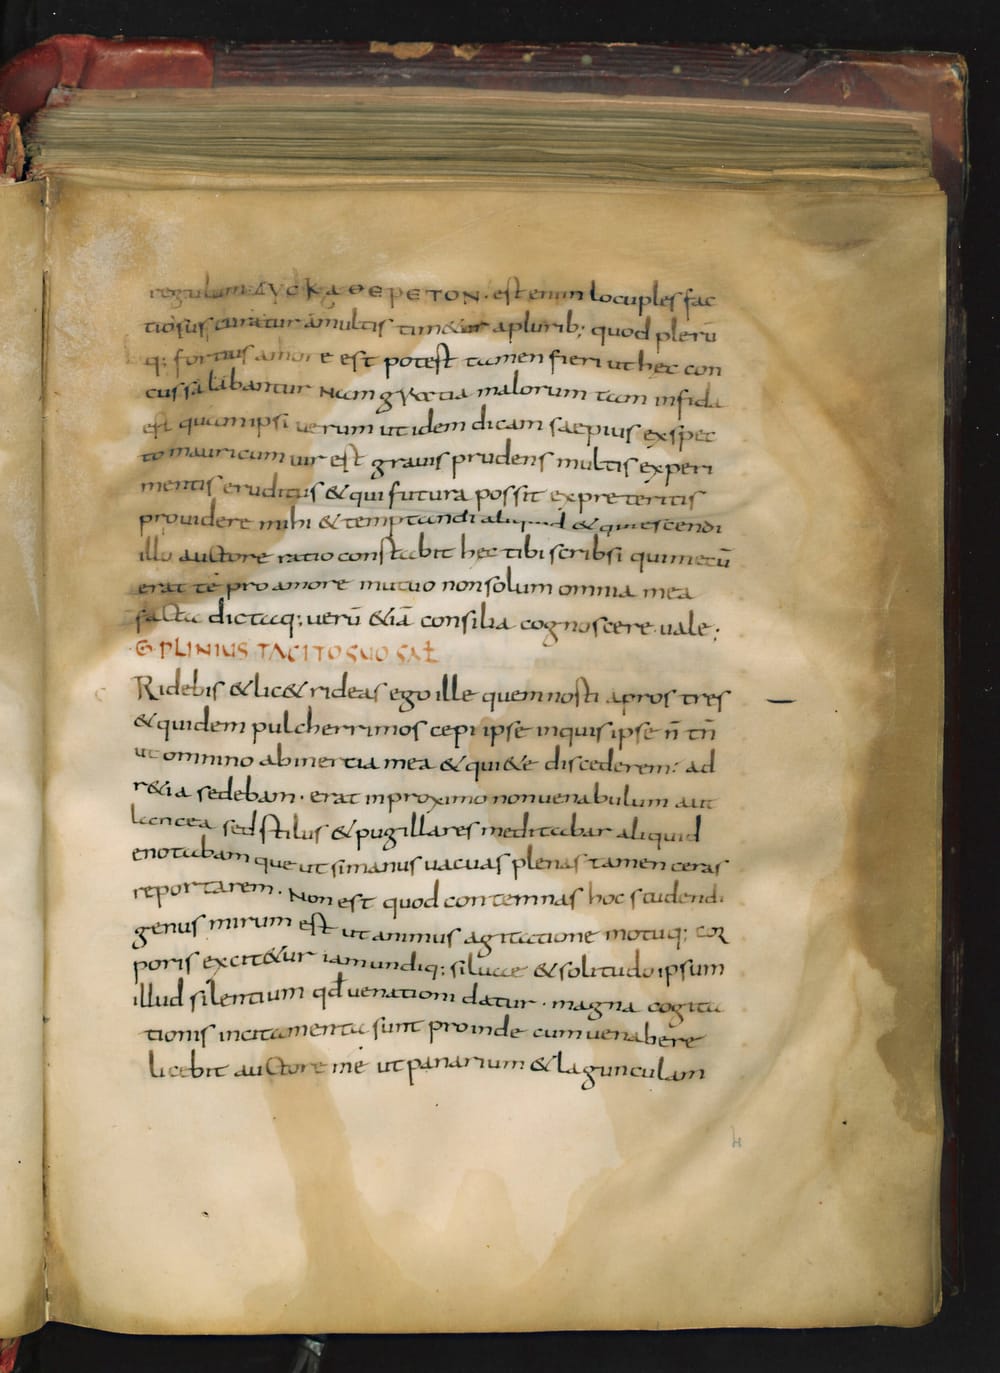 regulum ΔΥCΚΑΘΕΡΕΤΟΝ · est enim locuples fac
tiosus curatur amultis tim&ur aplurib; quod plerū
q; fortius amore est potest tamen fieri ut hęc con
cussa labantur Nam gratia malorum tam infida
est quam ipsi verum ut idem dicam saepius exspec
to mauricum uir est grauis prudens multis experi
mentis eruditus & qui futura possit ex preteritis
prouidere mihi & temptandi aliquid & quiescendi
illo auctore ratio constabit hęc tibi scribsi qui metū
erat te pro amore mutuo non solum omnia mea
facta dictaq; uerū &iā consilia cognoscere · uale;
G PLINIUS TACITO SUO SAŁ
Ridebis & lic& rideas ego ille quem nosti apros tres
& quidem pulcherrimos cepi ipse inquis ipse n̄ tn̄
ut omnino ab inertia mea & qui&e discederem: ad
r&ia sedebam · erat in proximo non uenabulum aut
lancea sed stilus & pugillares meditabar aliquid
enotabam que ut si manus uacuas plenas tamen ceras
reportarem · Non est quod contemnas hoc studendi
genus mirum est ut animus agitatione motuq; cor
poris excit&ur iam undiq; siluae & solitudo ipsum
illud silentium qđ uenationi datur · magna cogita
tionis incitamenta sunt proinde cum uenabere
licebit auctore me ut panarium & lagunculam